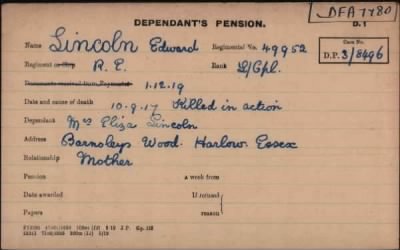 DFA7780
DEPENDANT'S PENSION.
D.1
Name Lincoln Edward Regimental No. 49952
Case No.
D.P. 3/8496
Regiment or Corp R.E. Rank L/Cpl.
Documents received from Regimental 1.12.19
Date and cause of death 10.9.17 Killed in action
Dependant Mrs Eliza Lincoln
Address Barnsleys Wood. Harlow. Essex
Relationship Mother
Pension a week from
Date awarded If refused
Papers reason